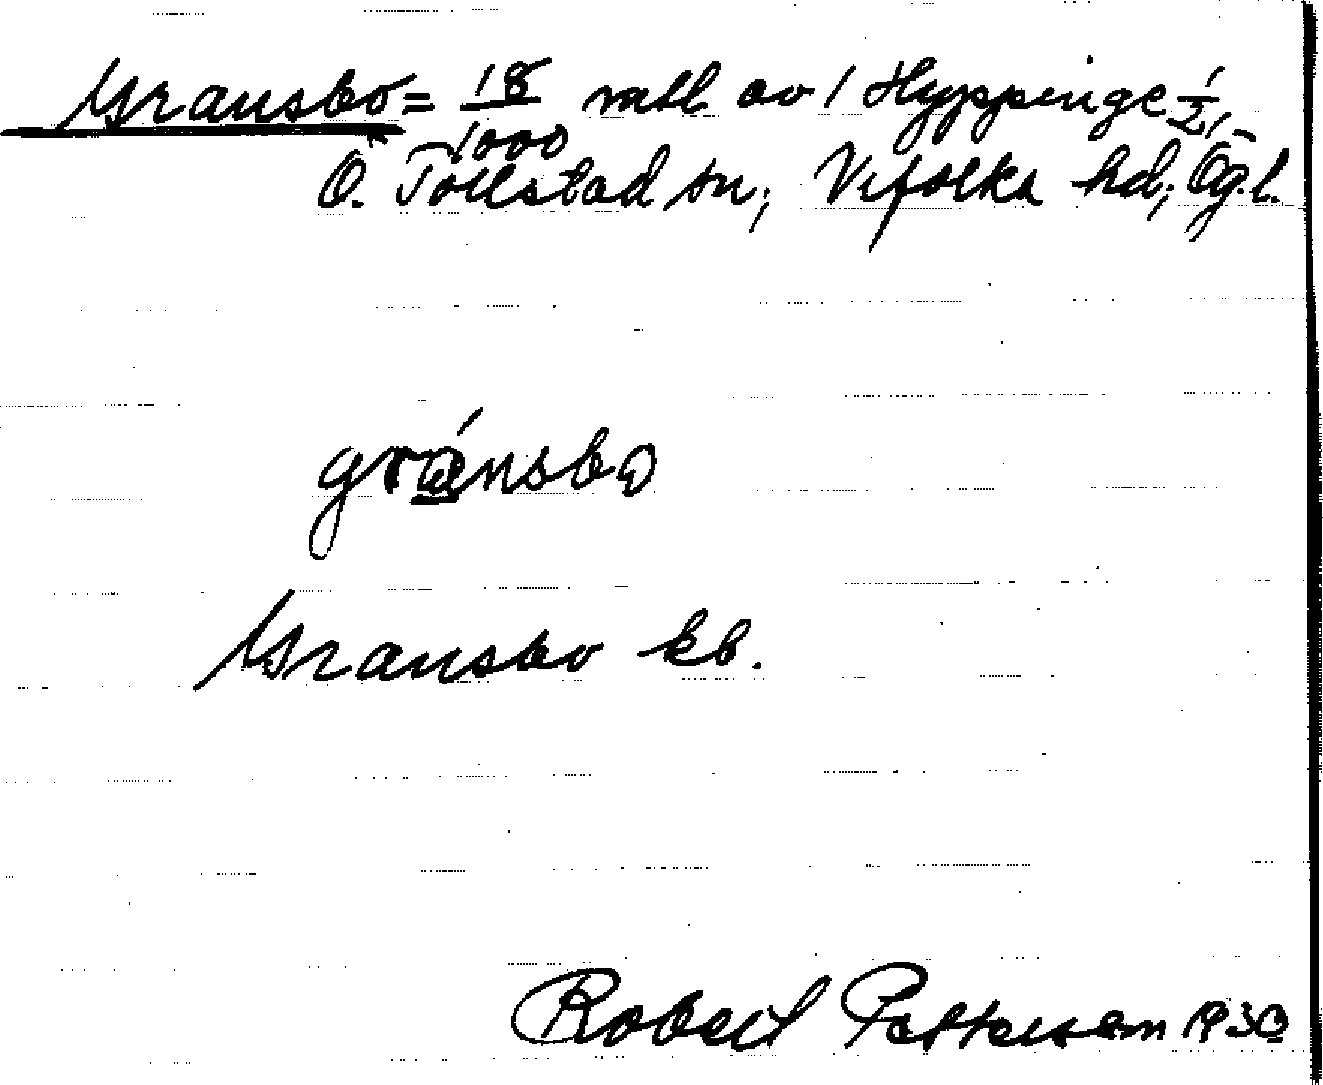 Gransbo = 18/1000 mtl. av 1 Hyppinge 1/2,
Ö. Tollstad sn, Vifolka hd, Ög. l.
gránsbo
Gransbo kb.
Robert Pettersson 1930